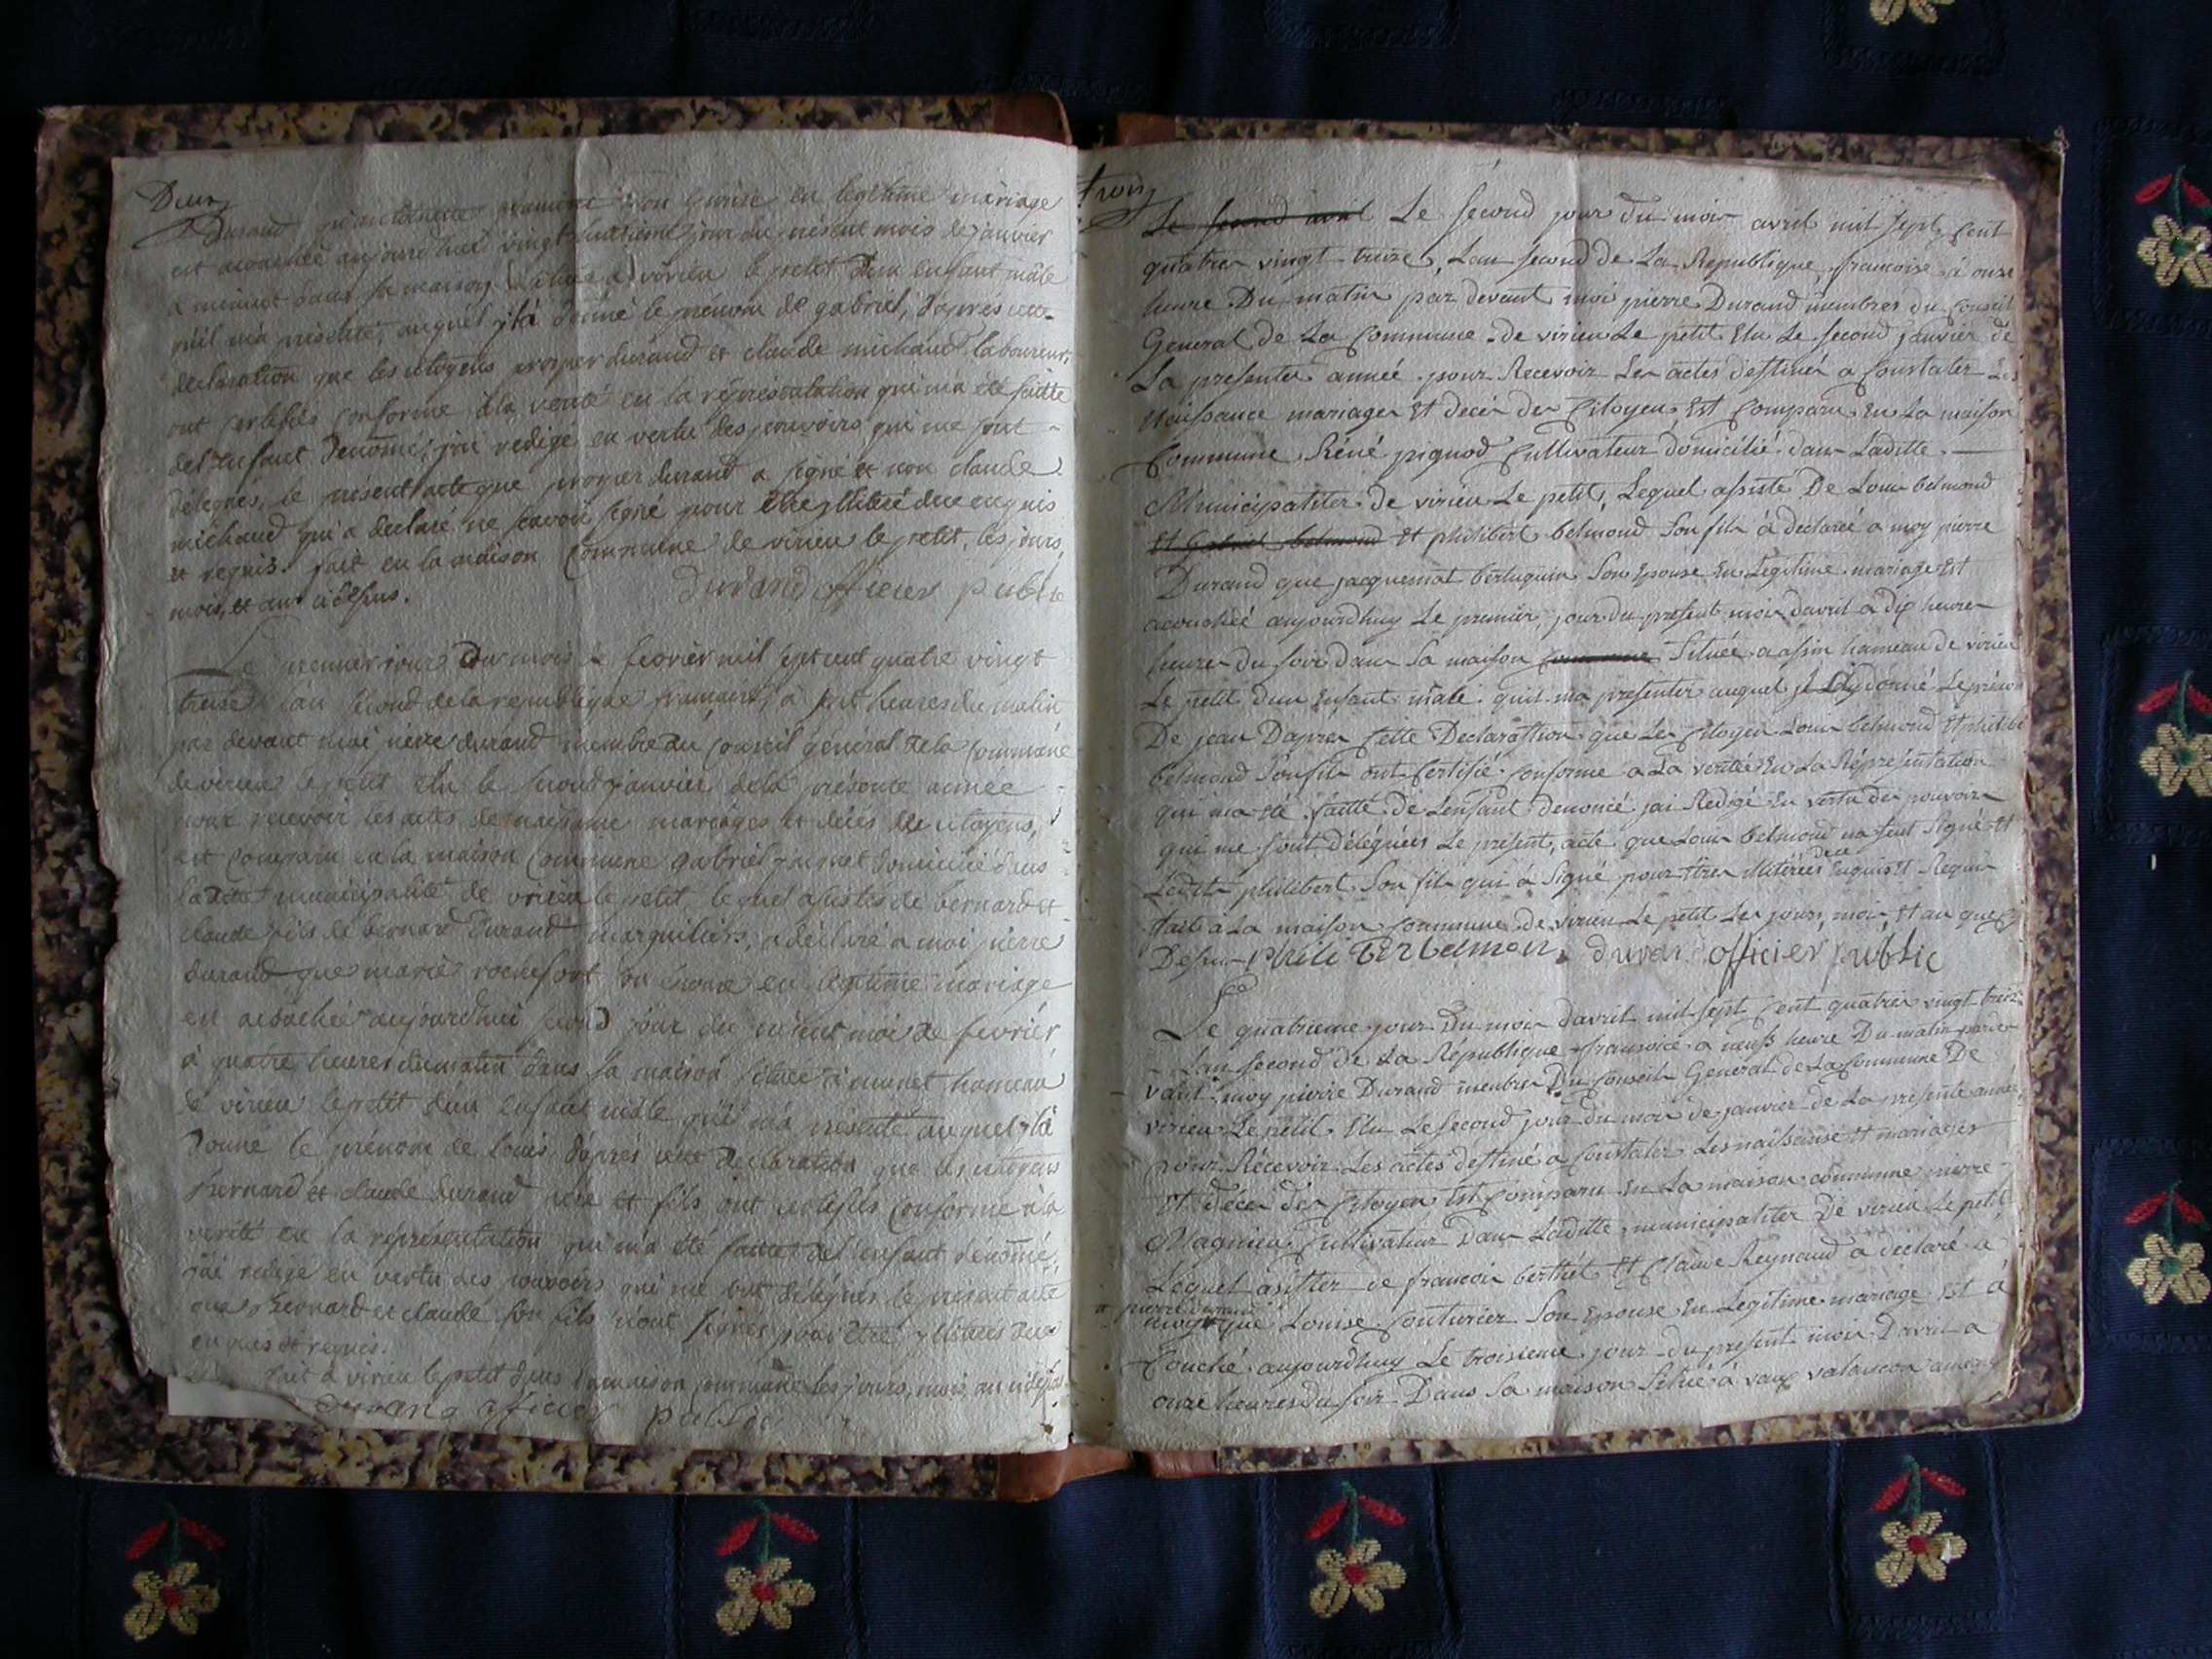 Deux
Durand qu'antoinette son épouse en légitime mariage
est acouchée aujourd'huy vingt huitième jour du présent mois de janvier
à minuit dans sa maison située à virieu le petit d'un enfant mâle
qu'il m'a présenté, auquel il a donné le prénom de gabriel, d'après cette
déclaration que les citoyens prosper durand et claude michaud laboureurs,
ont certifiés conforme à la verité en la représentation qui m'a été faitte
del'enfant denomé, j'ai redigé en vertu des pouvoirs qui me sont
délegués, le présent acte que prosper durand a signé et non claude
michaud qui a declaré ne scavoir signé pour être illitéré due enquis
et requis. fait en la maison commune de virieu le petit, les jours,
mois, et an ci dessus. durand officier public
Le premier jour du mois de fevrier mil sept cent quatre vingt
treize l'an second de la republique francaise à sept heures du matin
par devant moi piere durand membre du conseil général de la commune
de virieu le petit elu le second janvier dela présente année
pour recevoir les actes de naissance mariages et décès des citoyens,
est comparu en la maison commune gabriel domicilié dans
ladite municipalité de virieu le petit, lequel assistés de bernard et
claude fils de bernard durand marguiliers, a déclaré a moi pierre
durand que marie rochefort son épouse en légitime mariage
est acouchée aujourd'hui second jour du présent moi de fevrier
à quatre heures du matin dans sa maison située à hameau
de virieu le petit d'un enfant mâle qu'il m'a présenté auquel il a
donné le prénom de louis, d'après cette declaration que les citoyens
bernard et claude durand père et fils ont certifiés conforme à la
verité en la représentation qui m'a été faitte del'enfant dénomé,
j'ai redigé en vertu des pouvoirs qui me sont délégués le présent acte
que bernard et claude son fils n'ont signés pour être illitérés dues
enquis et requis.
fait à virieu le petit dans la maison commune les jours, mois, an ci dessus
durand officier public
trois
Le second avril Le second jour du mois avril mil sept cent
quatres vingt treize, L'an second de La Republique francoise à onze
heure Du matin par devant moi pierre Durand membres du conseil
General de La Commune de virieu Le petit Elu Le second janvier de
La presenter année pour Recevoir Les actes destinés a Constater Les
Naissance mariages Et decès des Citoyens Est Comparu En La maison
Commune Réné pignod Cultivateur domicilié dans Laditte
Municipaliter de virieu Le petit, Lequel assisté De Louis belmond
Et Gabriel belmond Et philibert belmond Son fils à declaréé a moy pierre
Durand que jacquemat bertuquin Son Epouse En Legitime mariage Est
acouchéé aujourdhuy Le premier, jour du present mois davril a dix heures
heures du soir dans Sa maison commune Située a assin hameau de virieu
Le petit dun Enfant mâle quil ma presenter auquel il a donné Le prénom
De jean Daprés Cette Declarattion que Les Citoyen Louis belmond Et philibe
belmond Son fils ont Certifié Conforme a La veritée En La Réprésentation
qui ma été faitte de Lenfant denomé jai Redigé En vertu des pouvoirs
qui me sont délégués Le présent, acte que Louis belmond na seut signé Et
Ledit philibert Son fils qui à Signé pour être illitérées due Enquis Et Requis
fait a La maison Commune de virieu Le petit Les jours, mois, Et an que cy
Dessus Philibert belmon durand officier public
Le quatrieme jour Du mois davril mil sept Cent quatres vingt treize
Lan second de La République fransoice a neufs heure Du matin parde
vant moy pierre Durand membres Du Conseils General de La Commune De
virieu Le petit, Elu Le second jour du mois de janvier de La presente année,
pour Récevoir Les actes destiné a Constater Les naissansse Et mariages
Et décès des Citoyen Est Comparu En La maison commune pierre
Magnieu Cultivateur Dans Laditte municipaliter De virieu Le petit
Lequel asister de francois berthet Et Claude Reynaud a déclaré a
pierre durand
moy que Louise Couturier Son Epouse En Legitime mariage Est à
Couché aujourdhuy Le troisieme jour du present mois Davril a
onze heures du soir Dans Sa maison Situé à vaux